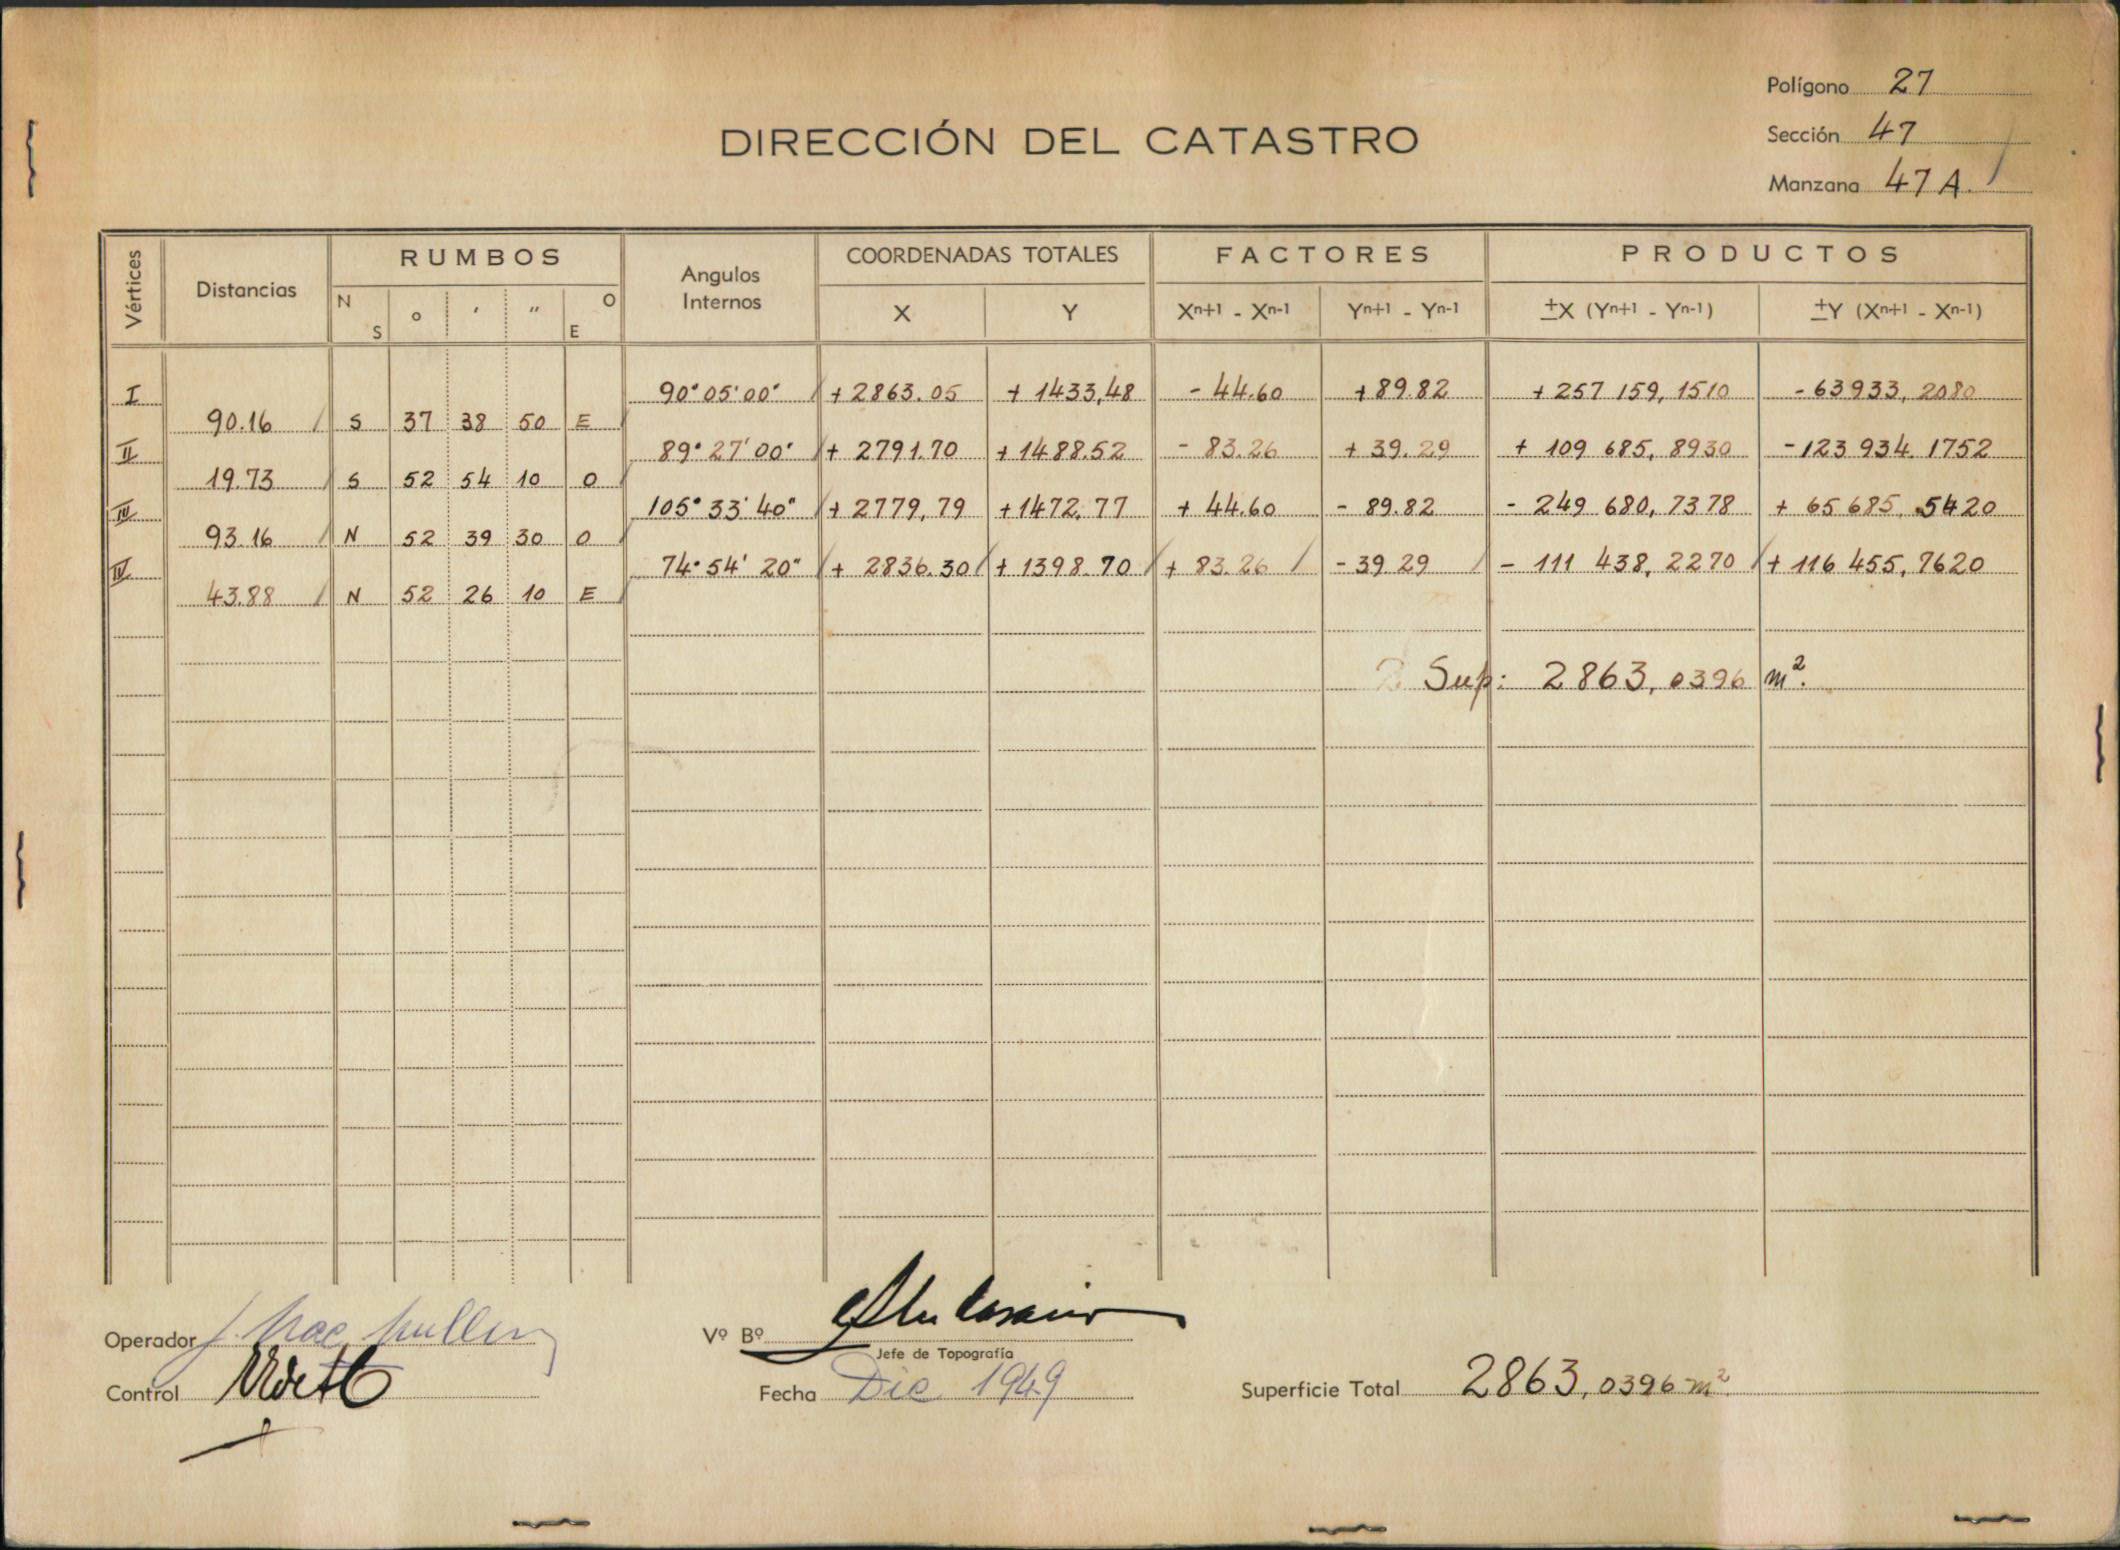 Polígono 27
DIRECCIÓN DEL CATASTRO
Sección 47
Manzana 47 A.
Vértices Distancias RUMBOS Angulos Internos COORDENADAS TOTALES FACTORES PRODUCTOS
N S ° ' " O E X Y Xn+1 - Xn-1 Yn+1 - Yn-1 ±X (Yn+1 - Yn-1) ±Y (Xn+1 - Xn-1)
I 90° 05' 00" + 2863.05 + 1433,48 - 44.60 + 89.82 + 257 159, 1510 - 63933, 2080
90.16 S 37 38 50 E
II 89° 27' 00" + 2791.70 + 1488.52 - 83.26 + 39.29 + 109 685, 8930 - 123 934. 1752
19.73 S 52 54 10 O
III 105° 33' 40" + 2779,79 + 1472.77 + 44.60 - 89.82 - 249 680, 7378 + 65 685, 5420
93.16 N 52 39 30 O
IV 74° 54' 20" + 2836.30 + 1398.70 + 83.26 - 39 29 - 111 438, 2270 + 116 455, 7620
43.88 N 52 26 10 E
Sup: 2863, 0396 m².
Operador J. Mac Mullen
Vº Bº
Jefe de Topografía
Control
Fecha Dic 1949
Superficie Total 2863, 0396 m²